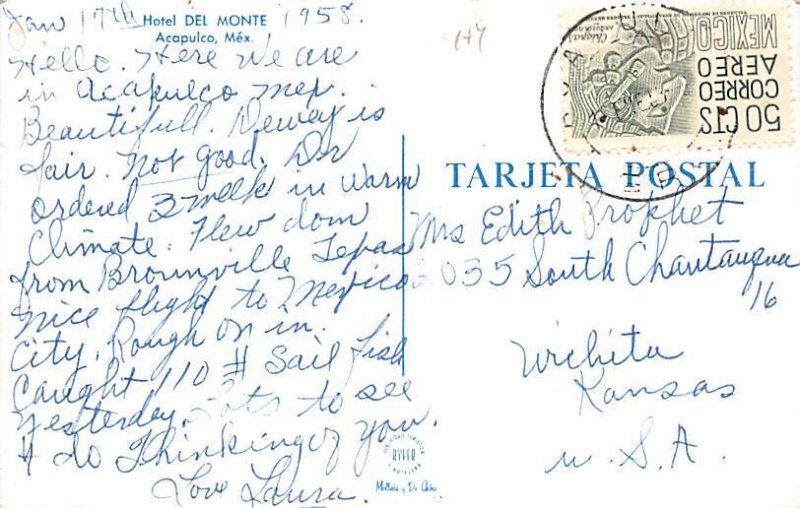 Jan 17th 1958.
Hotel DEL MONTE
Acapulco, Méx.
Hello. Here we are
in Acapulco Mex.
Beautifull. Dewey is
fair. Not Good. Dr
ordered 3 week in warm
Climate. Flew dom
from Brounville Texas
nice flight to Mexico
City, Rough on in.
Caught 110 # Sail fish
yesterday. Lots to see
& do Thinking of you.
Love Laura.
TARJETA POSTAL
Mrs Edith Prophet
2035 South Chautauqua
16
Wichita
Kansas
U.S.A.
MEXICO
CORREO
AEREO
50 CTS